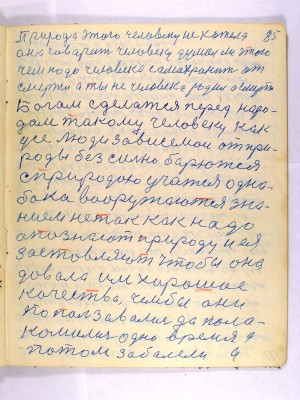 Природа этого человеку не хотела 85
она говарит человеку думал ли этого
чем надо человека самахранит от
смерти а ты не человека родил а смерть
Богам сделатся перед наро-
дам такому человеку как
усе люди зависемои от при-
роды без силно барются
с природою учатся одно-
бока вооружаются зна-
нием не так как надо
опознают природу и ея
заставляют чтобы она
довала им хорошие
качества, чембы они
ползавались да пола-
комились одно время а
потом забалели а